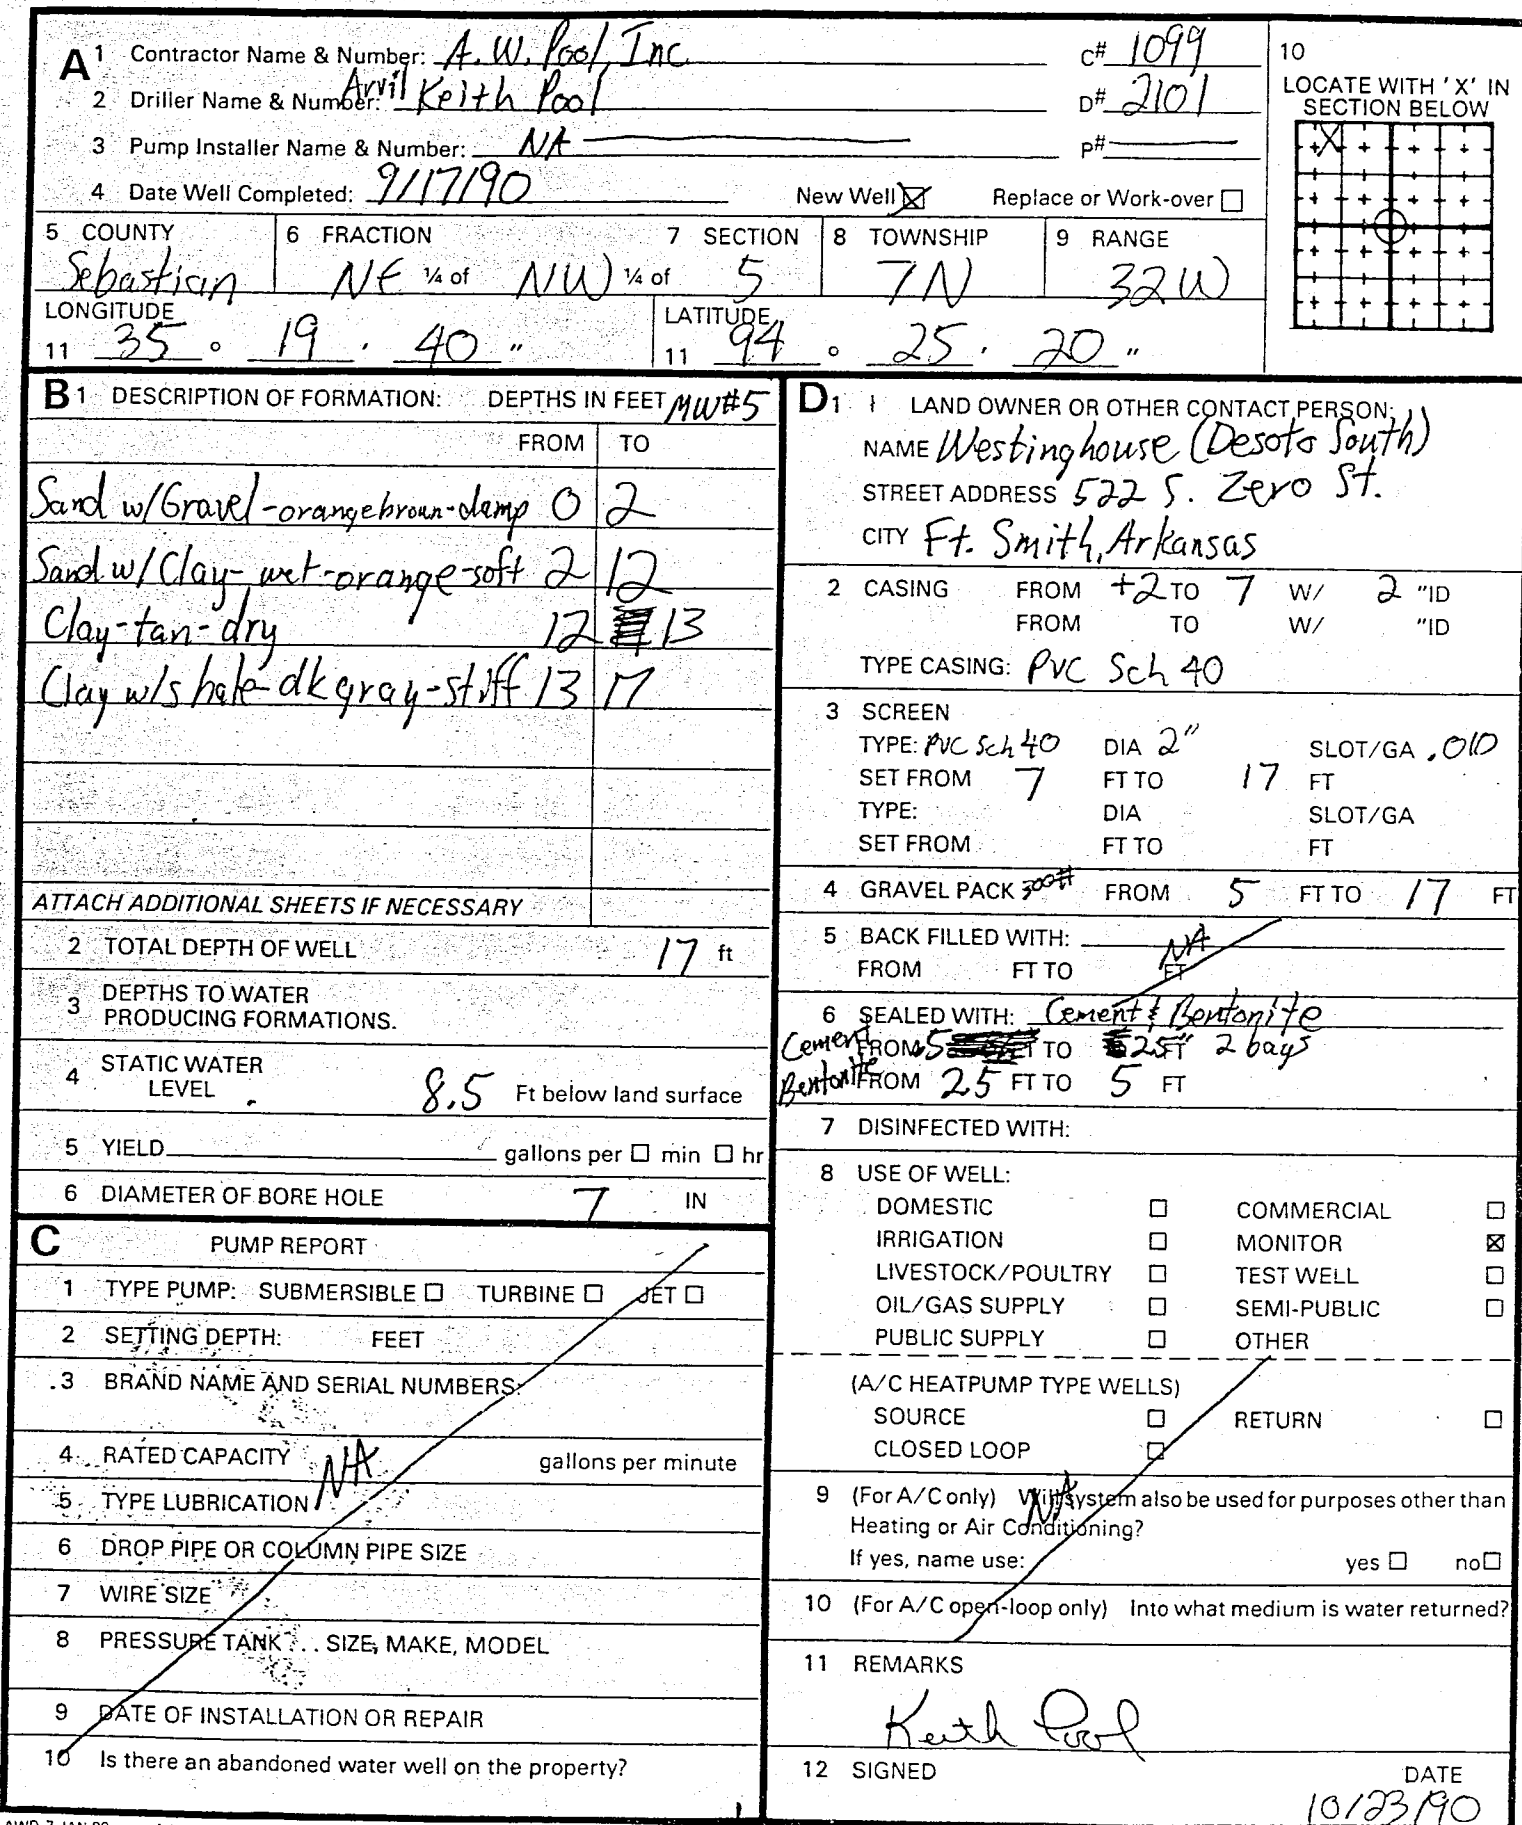 A 1 Contractor Name & Number: A.W. Pool, Inc. C# 1099
2 Driller Name & Number: Arvil Keith Pool D# 2101
3 Pump Installer Name & Number: NA P#
4 Date Well Completed: 9/17/90 New Well ☒ Replace or Work-over ☐
10
LOCATE WITH 'X' IN
SECTION BELOW
X
5 COUNTY 6 FRACTION 7 SECTION 8 TOWNSHIP 9 RANGE
Sebastian NE ¼ of NW ¼ of 5 7N 32W
LONGITUDE LATITUDE
11 35 ° 19 ' 40 " 11 94 ° 25 ' 20 "
B 1 DESCRIPTION OF FORMATION: DEPTHS IN FEET MW#5
FROM TO
Sand w/Gravel-orangebrown-damp 0 2
Sand w/Clay-wet-orange-soft 2 12
Clay-tan-dry 12 13
Clay w/shale-dk gray-stiff 13 17
ATTACH ADDITIONAL SHEETS IF NECESSARY
2 TOTAL DEPTH OF WELL 17 ft
3 DEPTHS TO WATER
PRODUCING FORMATIONS.
4 STATIC WATER
LEVEL 8.5 Ft below land surface
5 YIELD gallons per ☐ min ☐ hr
6 DIAMETER OF BORE HOLE 7 IN
C PUMP REPORT
1 TYPE PUMP: SUBMERSIBLE ☐ TURBINE ☐ JET ☐
2 SETTING DEPTH: FEET
3 BRAND NAME AND SERIAL NUMBERS:
4 RATED CAPACITY NA gallons per minute
5 TYPE LUBRICATION
6 DROP PIPE OR COLUMN PIPE SIZE
7 WIRE SIZE
8 PRESSURE TANK . . . SIZE, MAKE, MODEL
9 DATE OF INSTALLATION OR REPAIR
10 Is there an abandoned water well on the property?
D 1 LAND OWNER OR OTHER CONTACT PERSON:
NAME Westinghouse (Desoto South)
STREET ADDRESS 522 S. Zero St.
CITY Ft. Smith, Arkansas
2 CASING FROM +2 TO 7 W/ 2 "ID
FROM TO W/ "ID
TYPE CASING: PVC Sch 40
3 SCREEN
TYPE: PVC Sch 40 DIA 2" SLOT/GA .010
SET FROM 7 FT TO 17 FT
TYPE: DIA SLOT/GA
SET FROM FT TO FT
4 GRAVEL PACK 300# FROM 5 FT TO 17 FT
5 BACK FILLED WITH: NA
FROM FT TO FT
6 SEALED WITH: Cement & Bentonite
Cement FROM .5 FT TO 2.5 FT 2 bags
Bentonite FROM 2.5 FT TO 5 FT
7 DISINFECTED WITH:
8 USE OF WELL:
DOMESTIC ☐ COMMERCIAL ☐
IRRIGATION ☐ MONITOR ☒
LIVESTOCK/POULTRY ☐ TEST WELL ☐
OIL/GAS SUPPLY ☐ SEMI-PUBLIC ☐
PUBLIC SUPPLY ☐ OTHER
(A/C HEATPUMP TYPE WELLS)
SOURCE ☐ RETURN ☐
CLOSED LOOP ☐
9 (For A/C only) Will system also be used for purposes other than
Heating or Air Conditioning? NA
If yes, name use: yes ☐ no ☐
10 (For A/C open-loop only) Into what medium is water returned?
11 REMARKS
Keith Pool
12 SIGNED DATE
10/23/90